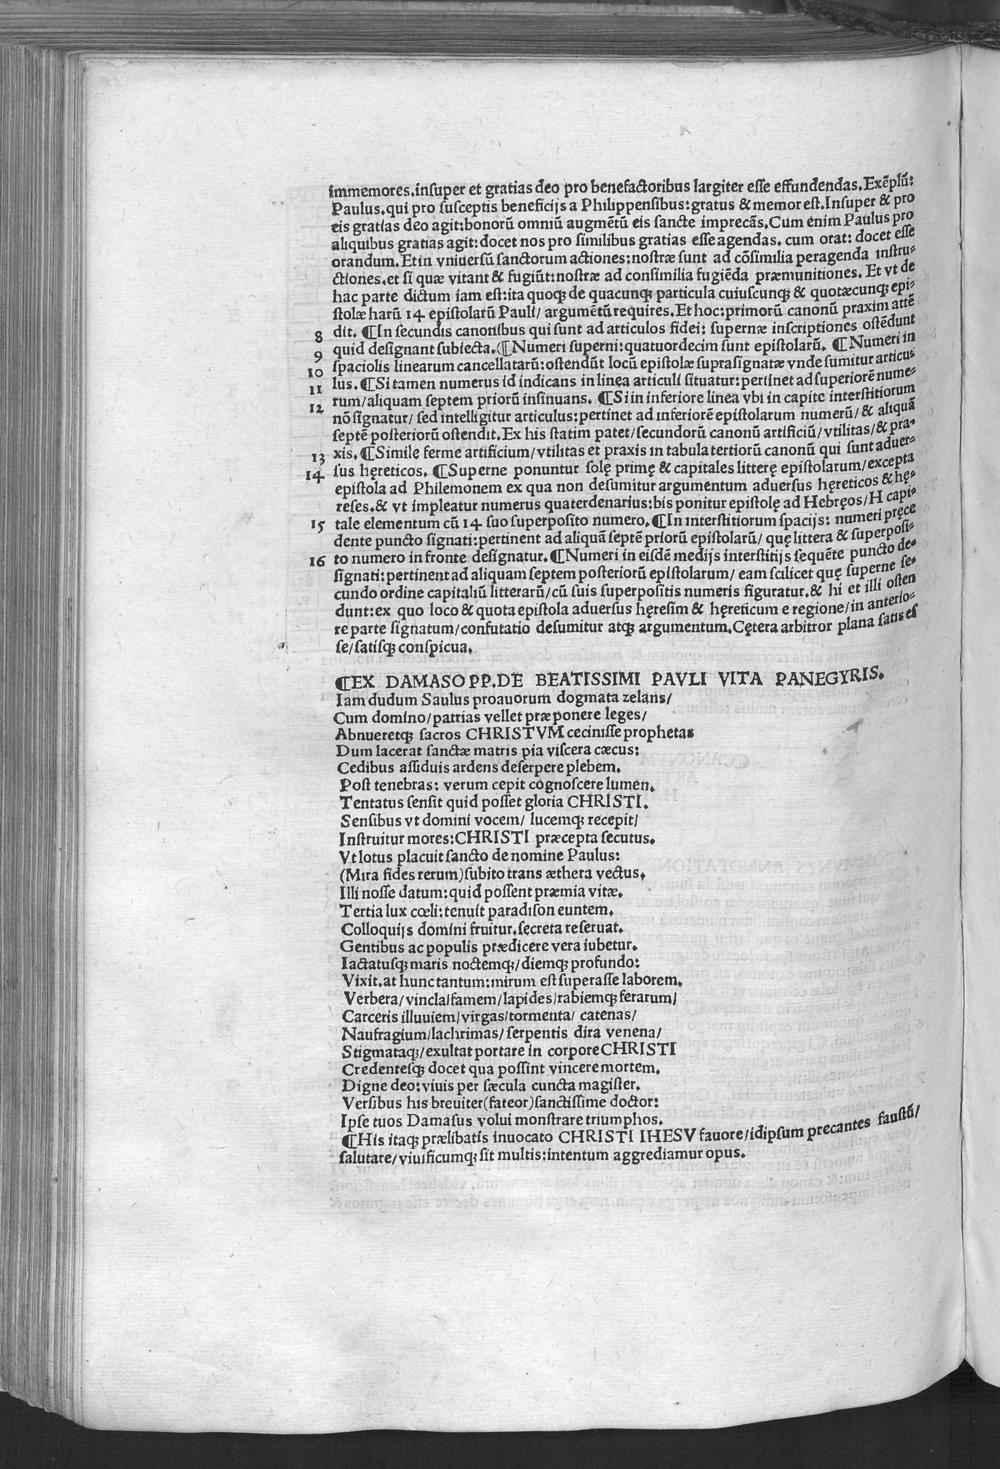 immemores.insuper et gratias deo pro benefactoribus largiter esse effundendas.Exēplū:
Paulus.qui pro susceptis beneficijs a Philippensibus:gratus & memor est.Insuper & pro
eis gratias deo agit:bonorū omniū augmētū eis sancte imprecās.Cum enim Paulus pro
aliquibus gratias agit:docet nos pro similibus gratias esse agendas. cum orat: docet esse
orandum.Et in vniuersū sanctorum actiones:nostræ sunt ad cōsimilia peragenda instru⸗
ctiones.et si quæ vitant & fugiūt:nostræ ad consimilia fugiēda præmunitiones. Et vt de
hac parte dictum iam est:ita quoqꝫ de quacunqꝫ particula cuiuscunqꝫ & quotæcunqꝫ epi⸗
stolæ harū 14 epistolarū Pauli/ argumētū requires.Et hoc:primorū canonū praxim attē
8 dit. ¶In secundis canonibus qui sunt ad articulos fidei: supernæ inscriptiones ostēdunt
9 quid designant subiecta.¶Numeri superni:quatuordecim sunt epistolarū. ¶Numeri in
10 spaciolis linearum cancellatarū:ostendūt locū epistolæ suprasignatæ vnde sumitur articu⸗
11 lus.¶Si tamen numerus id indicans in linea articuli situatur:pertinet ad superiorē nume⸗
12 rum/aliquam septem priorū insinuans. ¶Si in inferiore linea vbi in capite interstitiorum
nō signatur/ sed intelligitur articulus:pertinet ad inferiorē epistolarum numerū/ & aliquā
septē posteriorū ostendit.Ex his statim patet/secundorū canonū artificiū/vtilitas/& pra⸗
13 xis.¶Simile ferme artificium/vtilitas et praxis in tabula tertiorū canonū qui sunt aduer⸗
14 sus hęreticos. ¶Superne ponuntur solę primę & capitales litterę epistolarum/excepta
epistola ad Philemonem ex qua non desumitur argumentum aduersus hęreticos & hę⸗
reses.& vt impleatur numerus quaterdenarius:bis ponitur epistolę ad Hebręos/H capi⸗
15 tale elementum cū 14 suo superposito numero.¶In interstitiorum spacijs: numeri pręce
dente puncto signati:pertinent ad aliquā septē priorū epistolarū/ quę littera & superposi⸗
16 to numero in fronte designatur.¶Numeri in eisdē medijs interstitijs sequēte puncto de⸗
signati:pertinent ad aliquam septem posteriorū epistolarum/ eam scilicet quę superne se⸗
cundo ordine capitaliū litterarū/cū suis superpositis numeris figuratur.& hi et illi osten
dunt:ex quo loco & quota epistola aduersus hęresim & hęreticum e regione/in anterio⸗
re parte signatum/confutatio desumitur atqꝫ argumentum.Cętera arbitror plana satis es
se/satisqꝫ conspicua.
¶EX DAMASO PP.DE BEATISSIMI PAVLI VITA PANEGYRIS.
Iam dudum Saulus proauorum dogmata zelans/
Cum domino/patrias vellet præponere leges/
Abnueretqꝫ sacros CHRISTVM cecinisse prophetas
Dum lacerat sanctæ matris pia viscera cæcus:
Cedibus assiduis ardens deserpere plebem.
Post tenebras: verum cepit cognoscere lumen.
Tentatus sensit quid posset gloria CHRISTI.
Sensibus vt domini vocem/ lucemqꝫ recepit/
Instruitur mores:CHRISTI præcepta secutus.
Vt lotus placuit sancto de nomine Paulus:
(Mira fides rerum)subito trans æthera vectus.
Illi nosse datum:quid possent præmia vitæ.
Tertia lux cœli:tenuit paradison euntem.
Colloquijs domini fruitur.secreta reseruat.
Gentibus ac populis prædicere vera iubetur.
Iactatusqꝫ maris noctemqꝫ/diemqꝫ profundo:
Vixit.at hunc tantum:mirum est superasse laborem.
Verbera/vincla/famem/lapides/rabiemqꝫ ferarum/
Carceris illuuiem/virgas/tormenta/ catenas/
Naufragium/lachrimas/serpentis dira venena/
Stigmataqꝫ/exultat portare in corpore CHRISTI
Credentesqꝫ docet qua possint vincere mortem.
Digne deo:viuis per sæcula cuncta magister.
Versibus his breuiter(fateor)sanctissime doctor:
Ipse tuos Damasus volui monstrare triumphos.
¶His itaqꝫ prælibatis inuocato CHRISTI IHESV fauore/idipsum precantes faustū/
salutare/viuificumqꝫ sit multis:intentum aggrediamur opus.